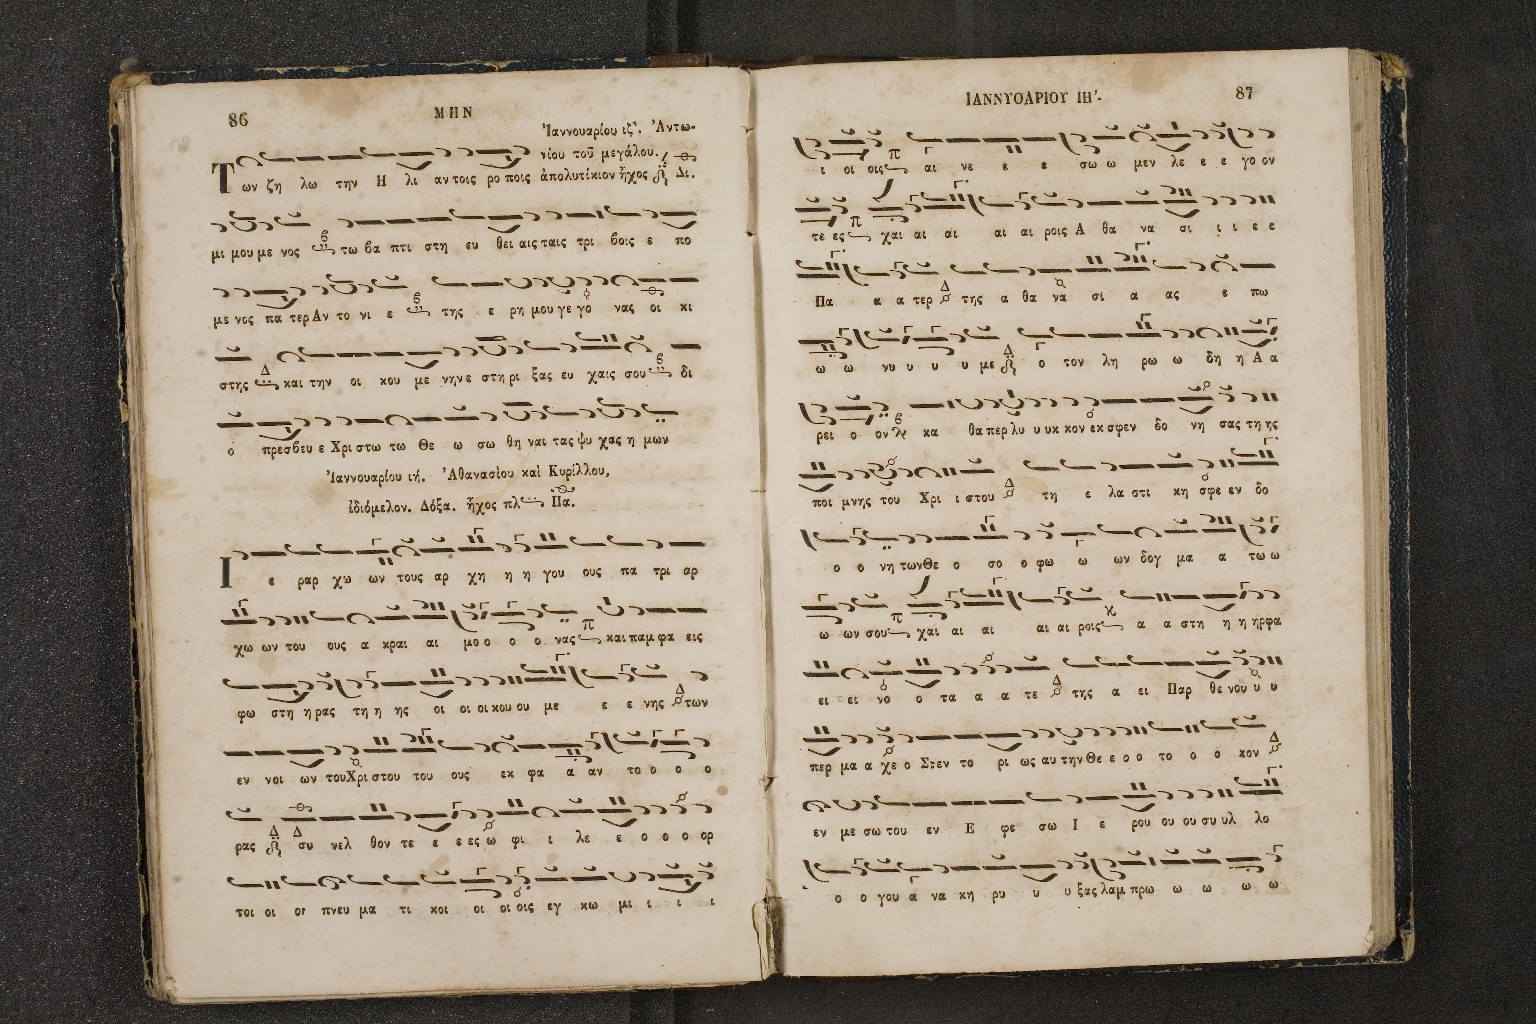 86
ΜΗΝ
Ἰαννουαρίου ιζ'. Ἀντω-
νίου τοῦ μεγάλου.
Των ζη λω την Η λι αν τοις ρο ποις ἀπολυτίκιον ἦχος Δι.
μι μου με νος τω βα πτι στη ευ θει αις ταις τρι βοις ε πο
με νος πα τερ Αν το νι ε της ε ρη μου γε γο νας οι κι
στης και την οι κου με νην ε στη ρι ξας ευ χαις σου δι
ο πρεσβευ ε Χρι στω τω Θε ω σω θη ναι τας ψυ χας η μων
Ἰαννουαρίου ιή. Ἀθανασίου καὶ Κυρίλλου,
ἰδιόμελον. Δόξα. ἦχος πλ Πα.
Ι ε ραρ χω ων τους αρ χη η η γου ους πα τρι αρ
χω ων του ους α κραι αι μο ο ο ο νας και παμ φα εις
φω στη η ρας τη η ης οι οι οι κου ου με ε ε νης των
εν νοι ων του Χρι στου του ους εκ φα α αν το ο ο ο
ρας συ νελ θον τε ε ε ε ες ω φι ι λε ε ο ο ο ορ
τοι οι οι πνευ μα τι κοι οι οι οις εγ κω μι ι ι ι
ΙΑΝΝΥΟΑΡΙΟΥ ΙΗ'.
87
ι οι οις αι νε ε ε ε σω ω μεν λε ε ε γο ον
τε ες χαι αι αι αι αι ροις Α θα να σι ι ι ε ε
Πα α α τερ της α θα να σι α ας ε πω
ω ω νυ υ υ υ με ο τον λη ρω ω δη η Α α
ρει ο ον κα θα περ λυ υ υκ κον εκ σφεν δο νη σας τη ης
ποι μνης του Χρι ι στου τη ε λα στι κη σφε εν δο
ο ο νη των Θε ο σο ο φω ω ων δογ μα α τω ω
ω ων σου χαι αι αι αι αι ροις α α στη η η ηρφα
ει ει νο ο τα α α τε της α ει Παρ θε νου υ υ
περ μα α χε ο Στεν το ρι ως αυ την Θε ε ο ο το ο ο κον
εν με σω του εν Ε φε σω Ι ε ρου ου ου συ υλ λο
ο ο γου α να κη ρυ υ υ ξας λαμ πρω ω ω ω ω